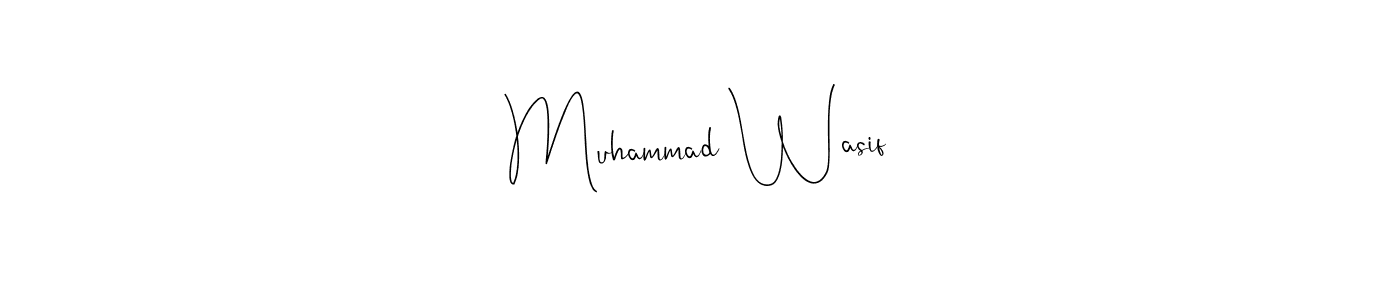 Muhammad Wasif